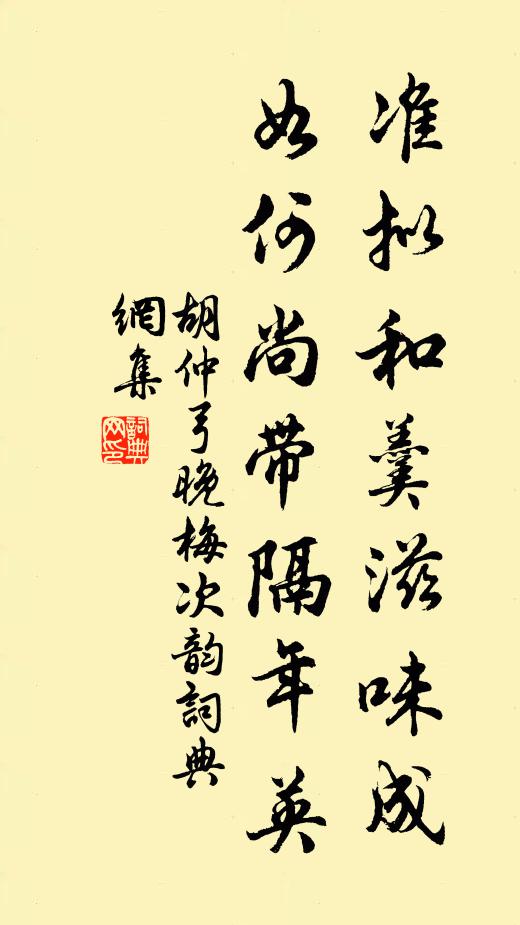 准拟和羹滋味成
如何尚带隔年英
胡仲弓晚梅次韵詞典
網集
詞典
网印